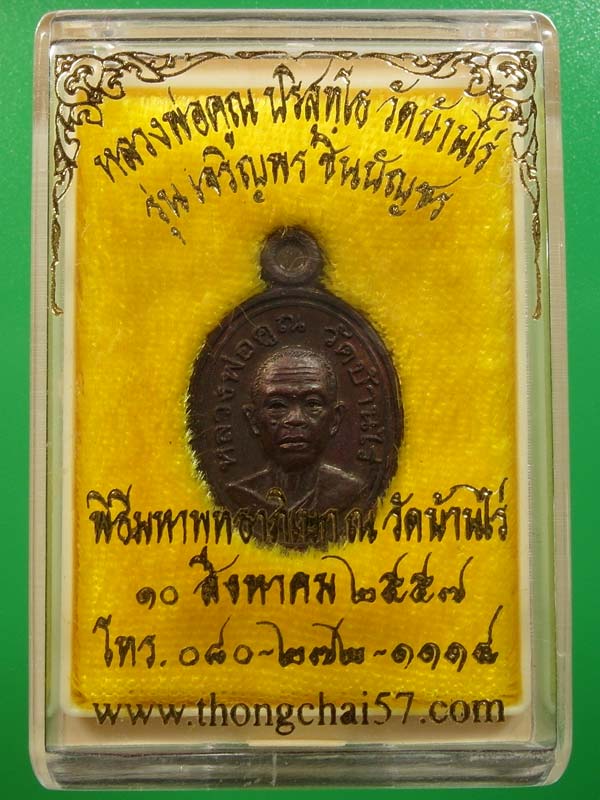 หลวงพ่อคูณ ปริสุทฺโธ วัดบ้านไร่
รุ่น เจริญพร ชินบัญชร
หลวงพ่อคูณ วัดบ้านไร่
พิธีมหาพุทธาภิเษก ณ วัดบ้านไร่
๑๐ สิงหาคม ๒๕๕๗
โทร. ๐๘๐-๒๗๒-๑๑๑๕
www.thongchai57.com